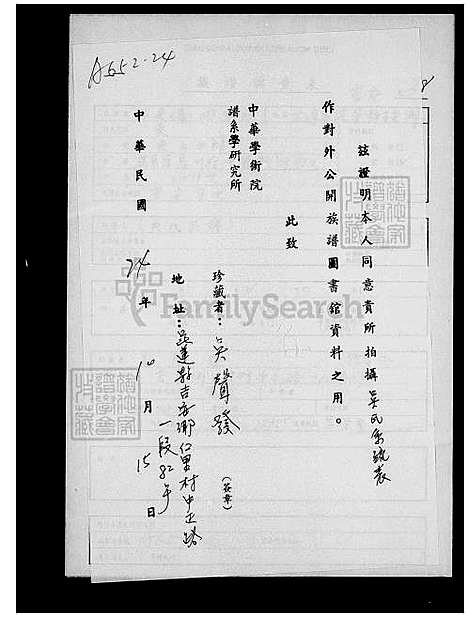 A652-24
茲證明本人同意貴所拍攝吳氏系統表
作對外公開族譜圖書館資料之用。
此致
中華學術院
譜系學研究所
珍藏者：吳聲發（簽章）
地址：花蓮縣吉安鄉仁里村中正路
一段82號
中華民國74年10月15日
FamilySearch